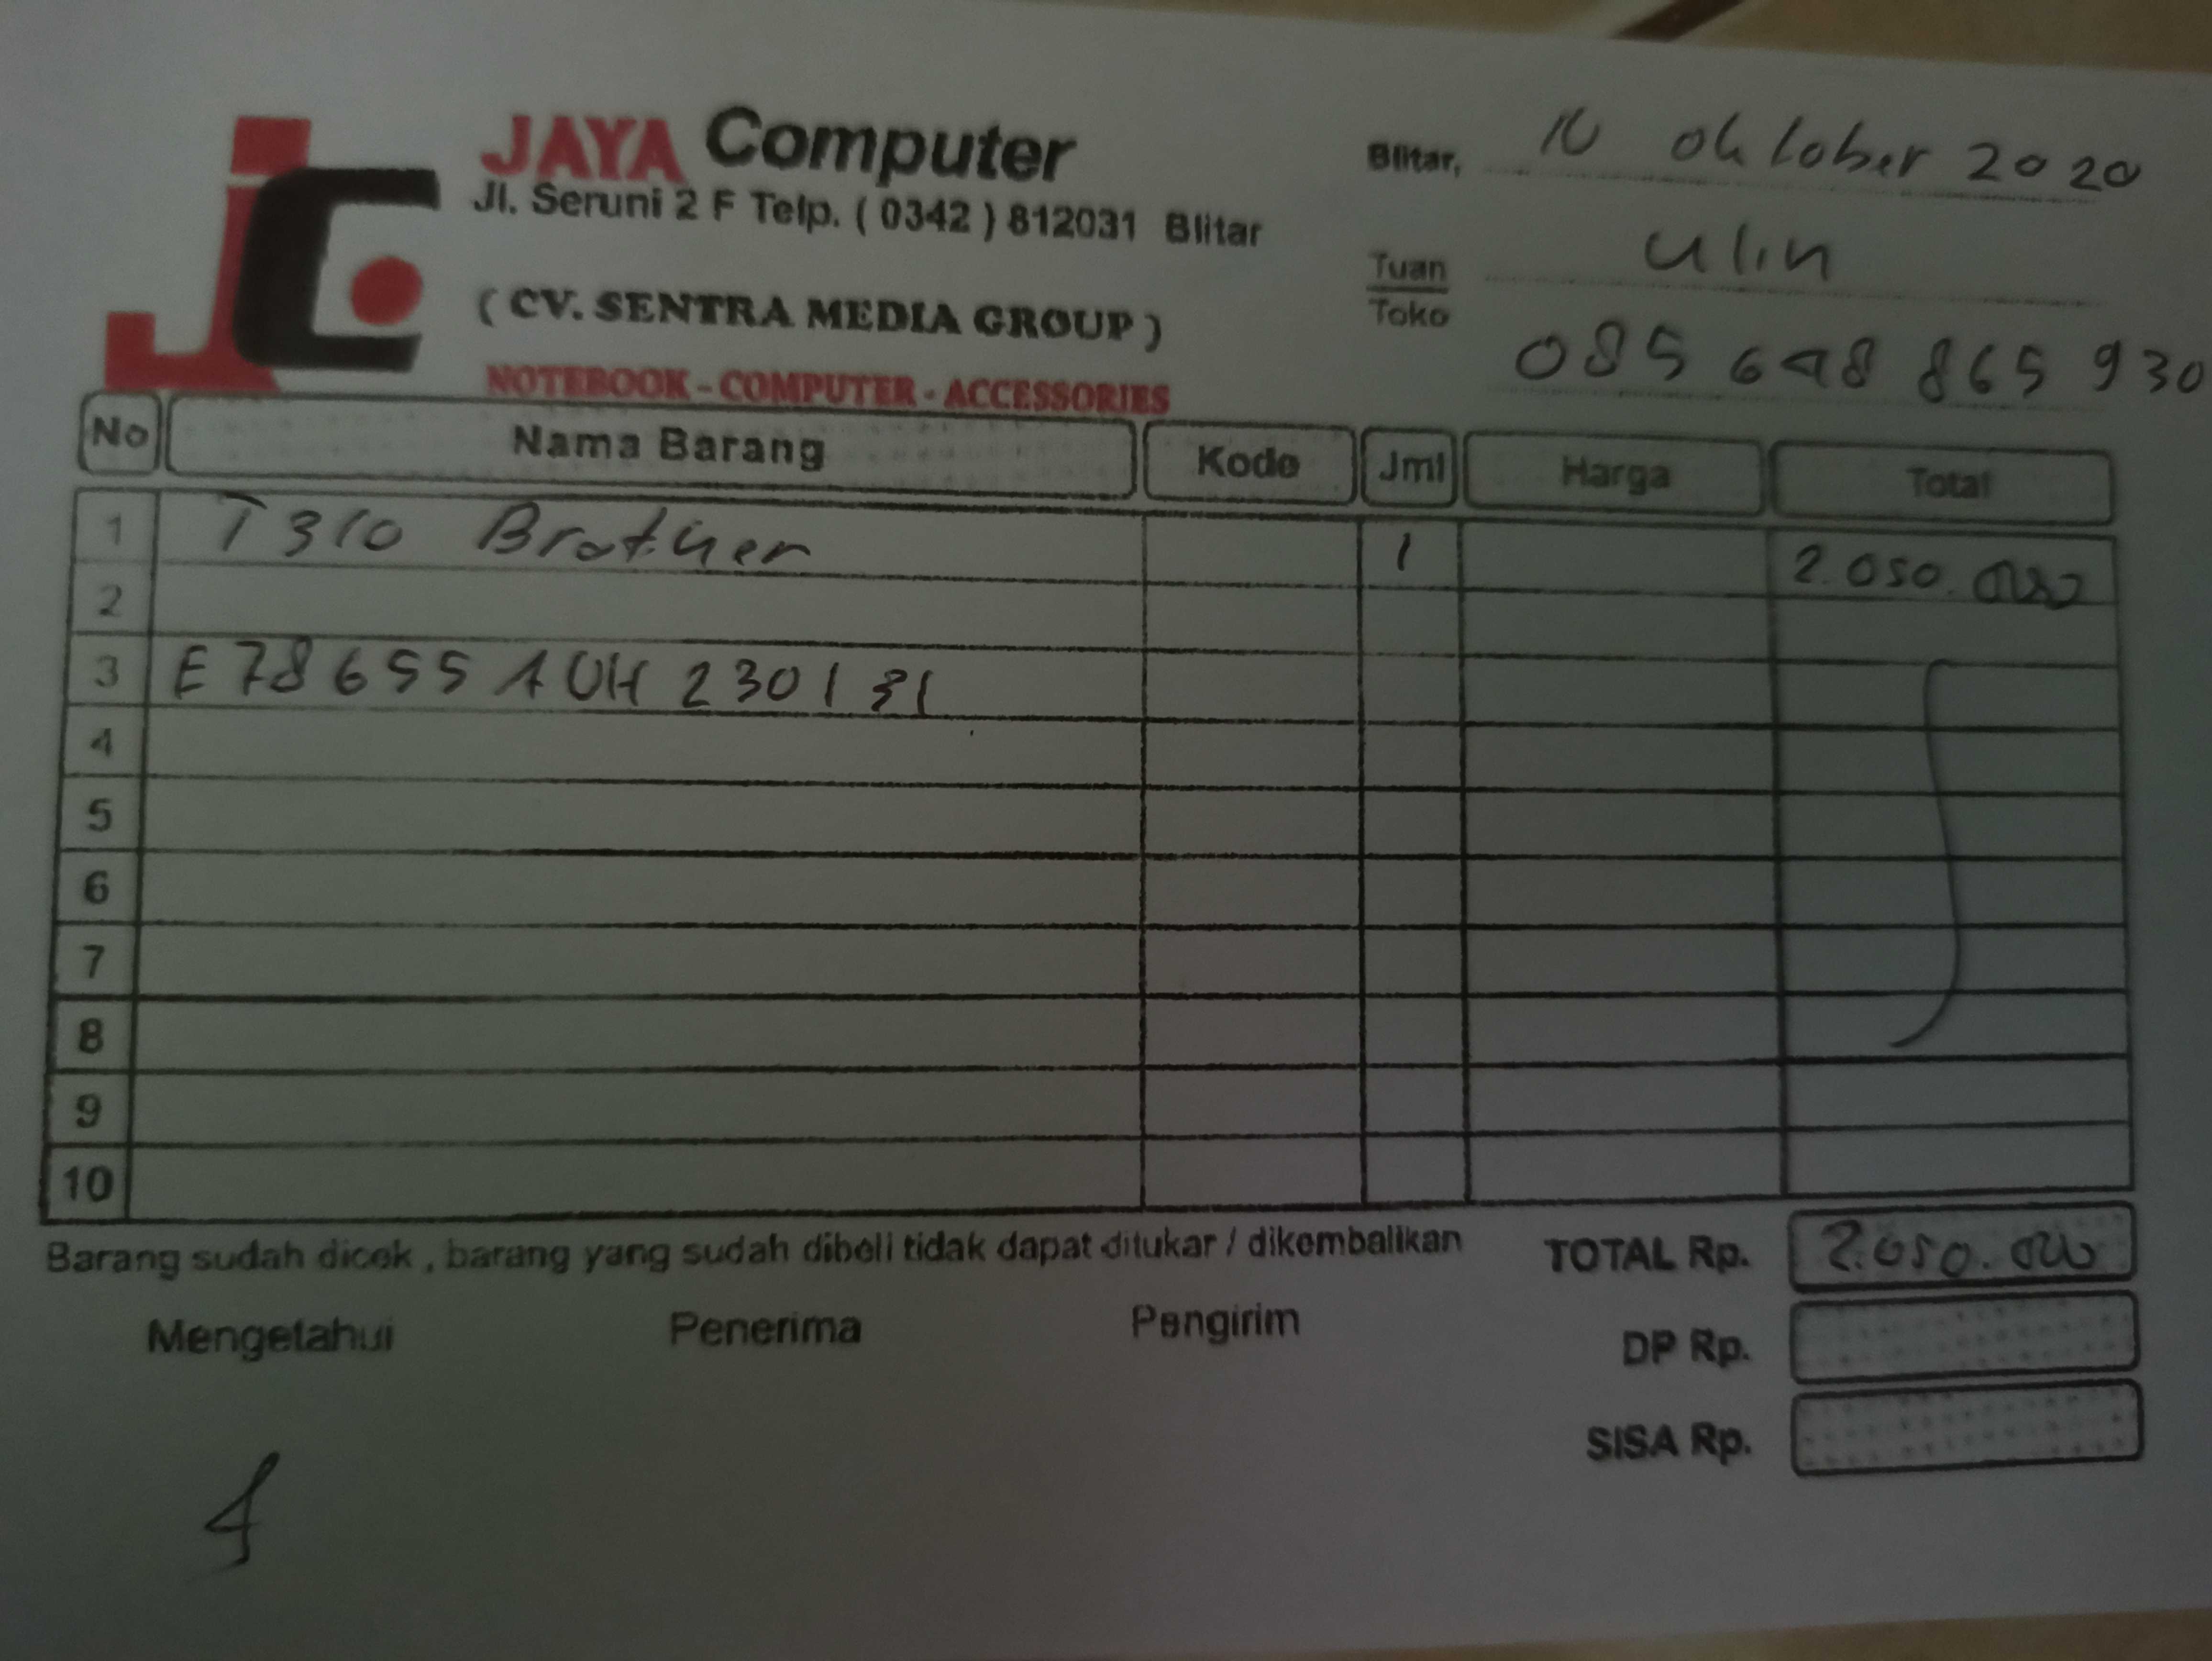 JAYA Computer
Jl. Seruni 2 F Telp. ( 0342 ) 812031 Blitar
( CV. SENTRA MEDIA GROUP )
NOTEBOOK - COMPUTER - ACCESSORIES
Blitar, 10 Oktober 2020
Tuan Ulin
Toko
085 648 865 930
No Nama Barang Kode Jml Harga Total
1 T310 Brother 1 2.050.000
2
3 E78655A0H230131
4
5
6
7
8
9
10
Barang sudah dicek , barang yang sudah dibeli tidak dapat ditukar / dikembalikan
TOTAL Rp. 2.050.000
Mengetahui Penerima Pengirim
DP Rp.
SISA Rp.